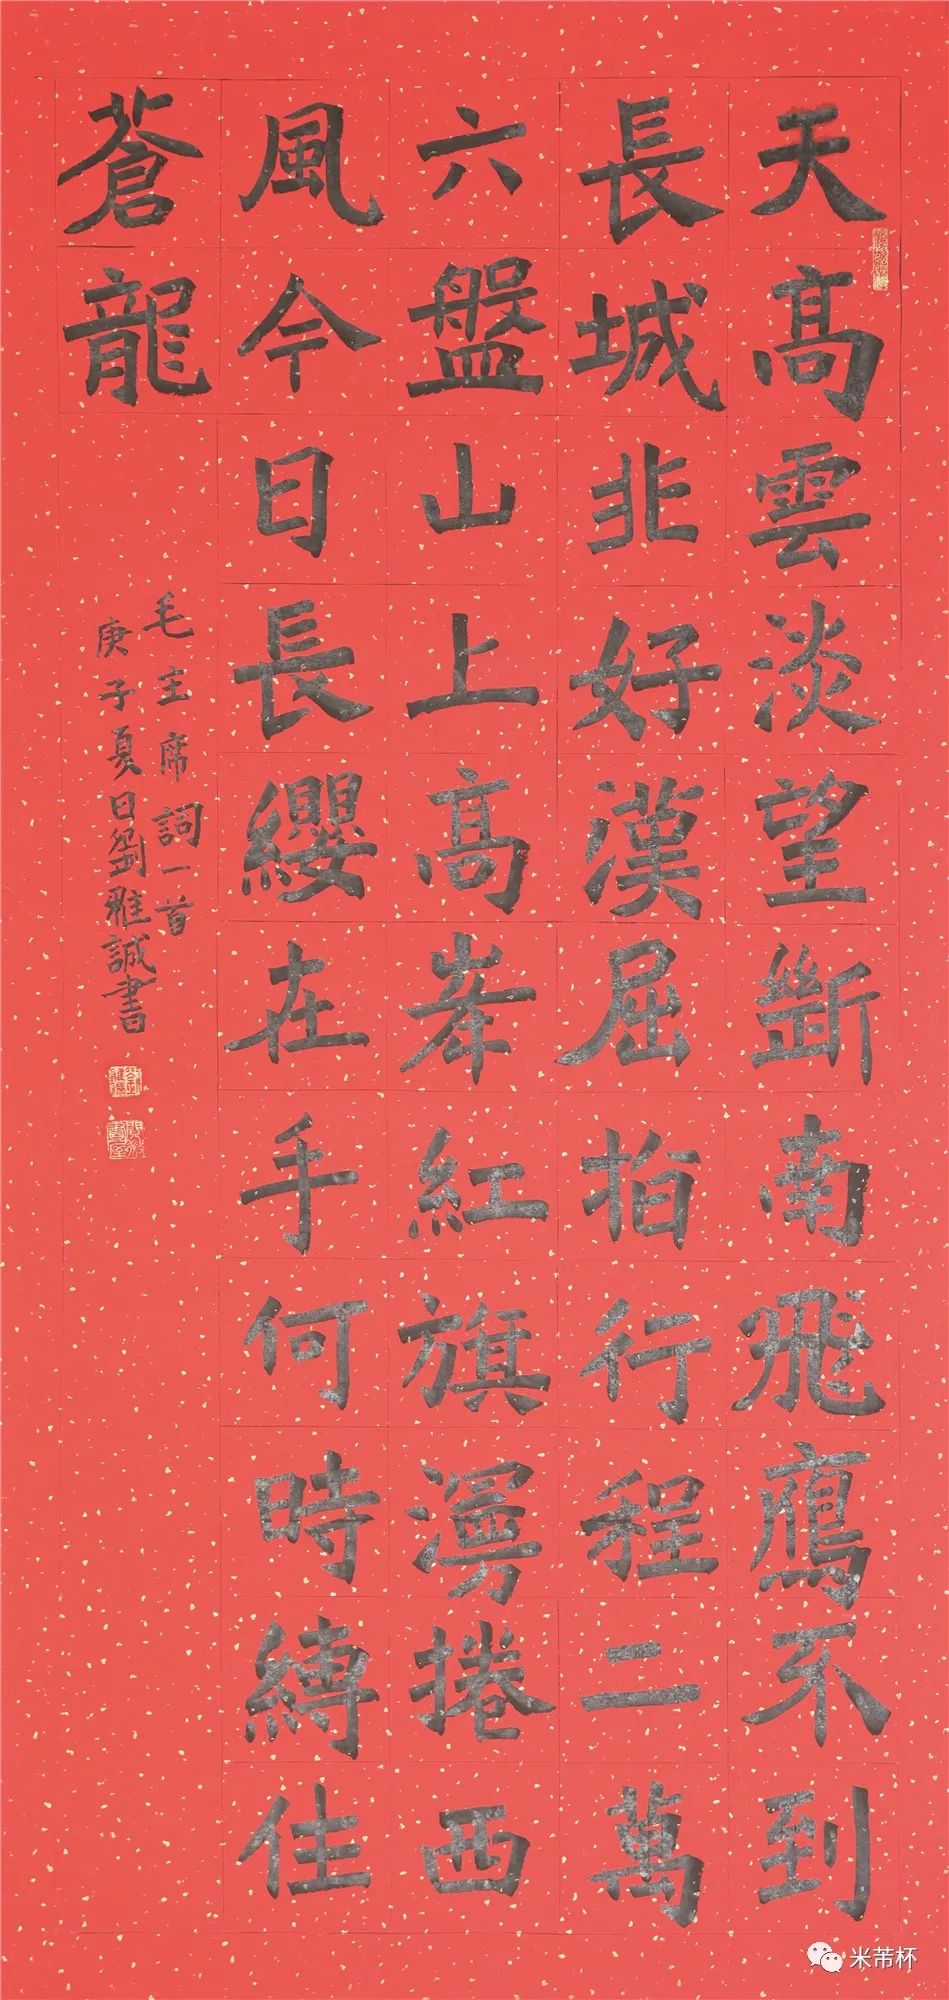 天髙雲淡望斷南飛鴈不到
長城非好漢屈指行程二萬
六盤山上高峯紅旗漫捲西
風今日長纓在手何時縛住
蒼龍
毛主席詞一首
庚子夏日劉雅誠書
米芾杯